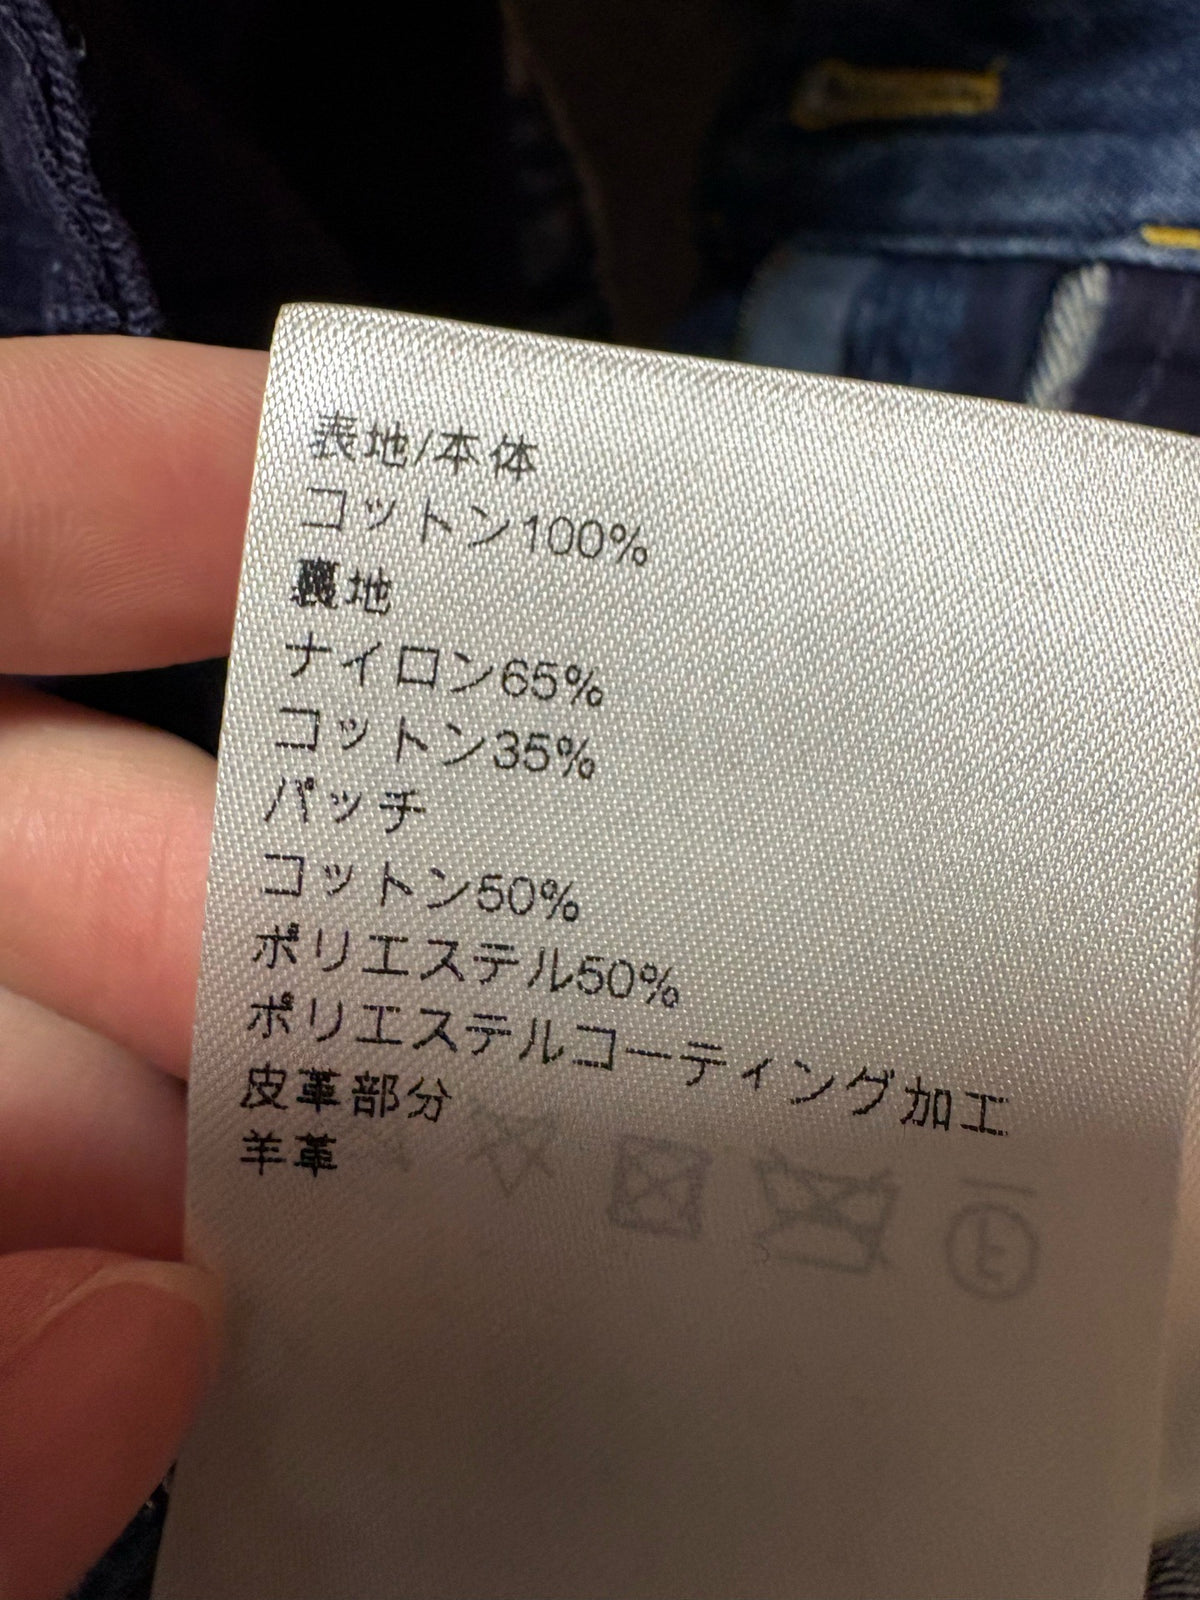 表地/本体
コットン100%
裏地
ナイロン65%
コットン35%
パッチ
コットン50%
ポリエステル50%
ポリエステルコーティング加工
皮革部分
羊革